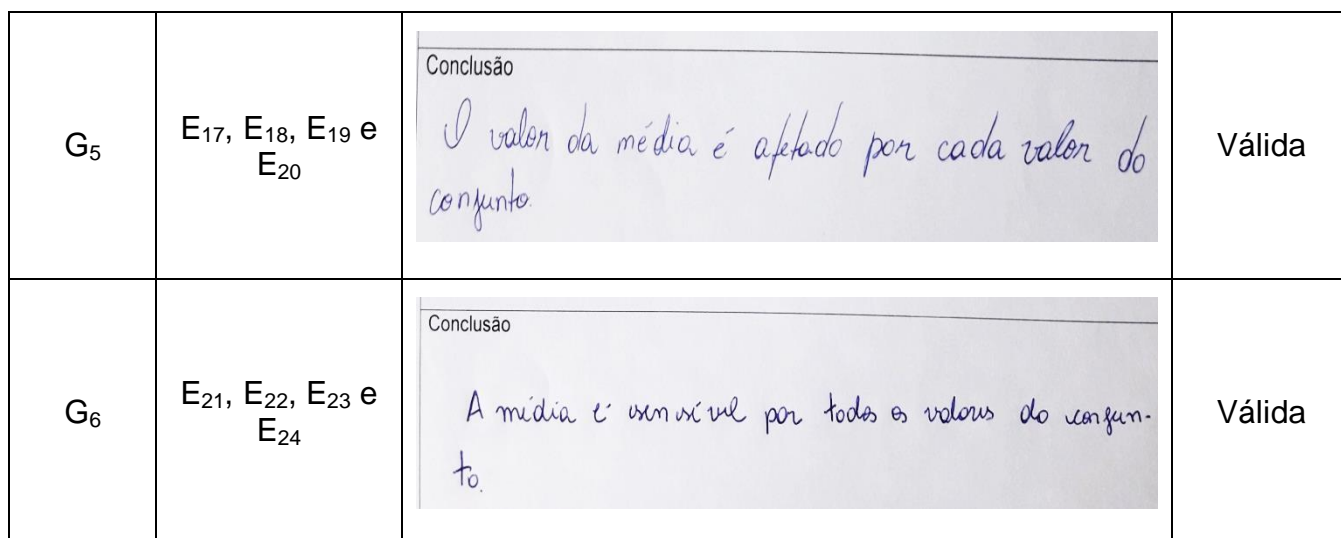 G5
E17, E18, E19 e
E20
Conclusão
O valor da média é afetado por cada valor do
conjunto.
Válida
G6
E21, E22, E23 e
E24
Conclusão
A média é sensível por todos os valores do conjun-
to.
Válida